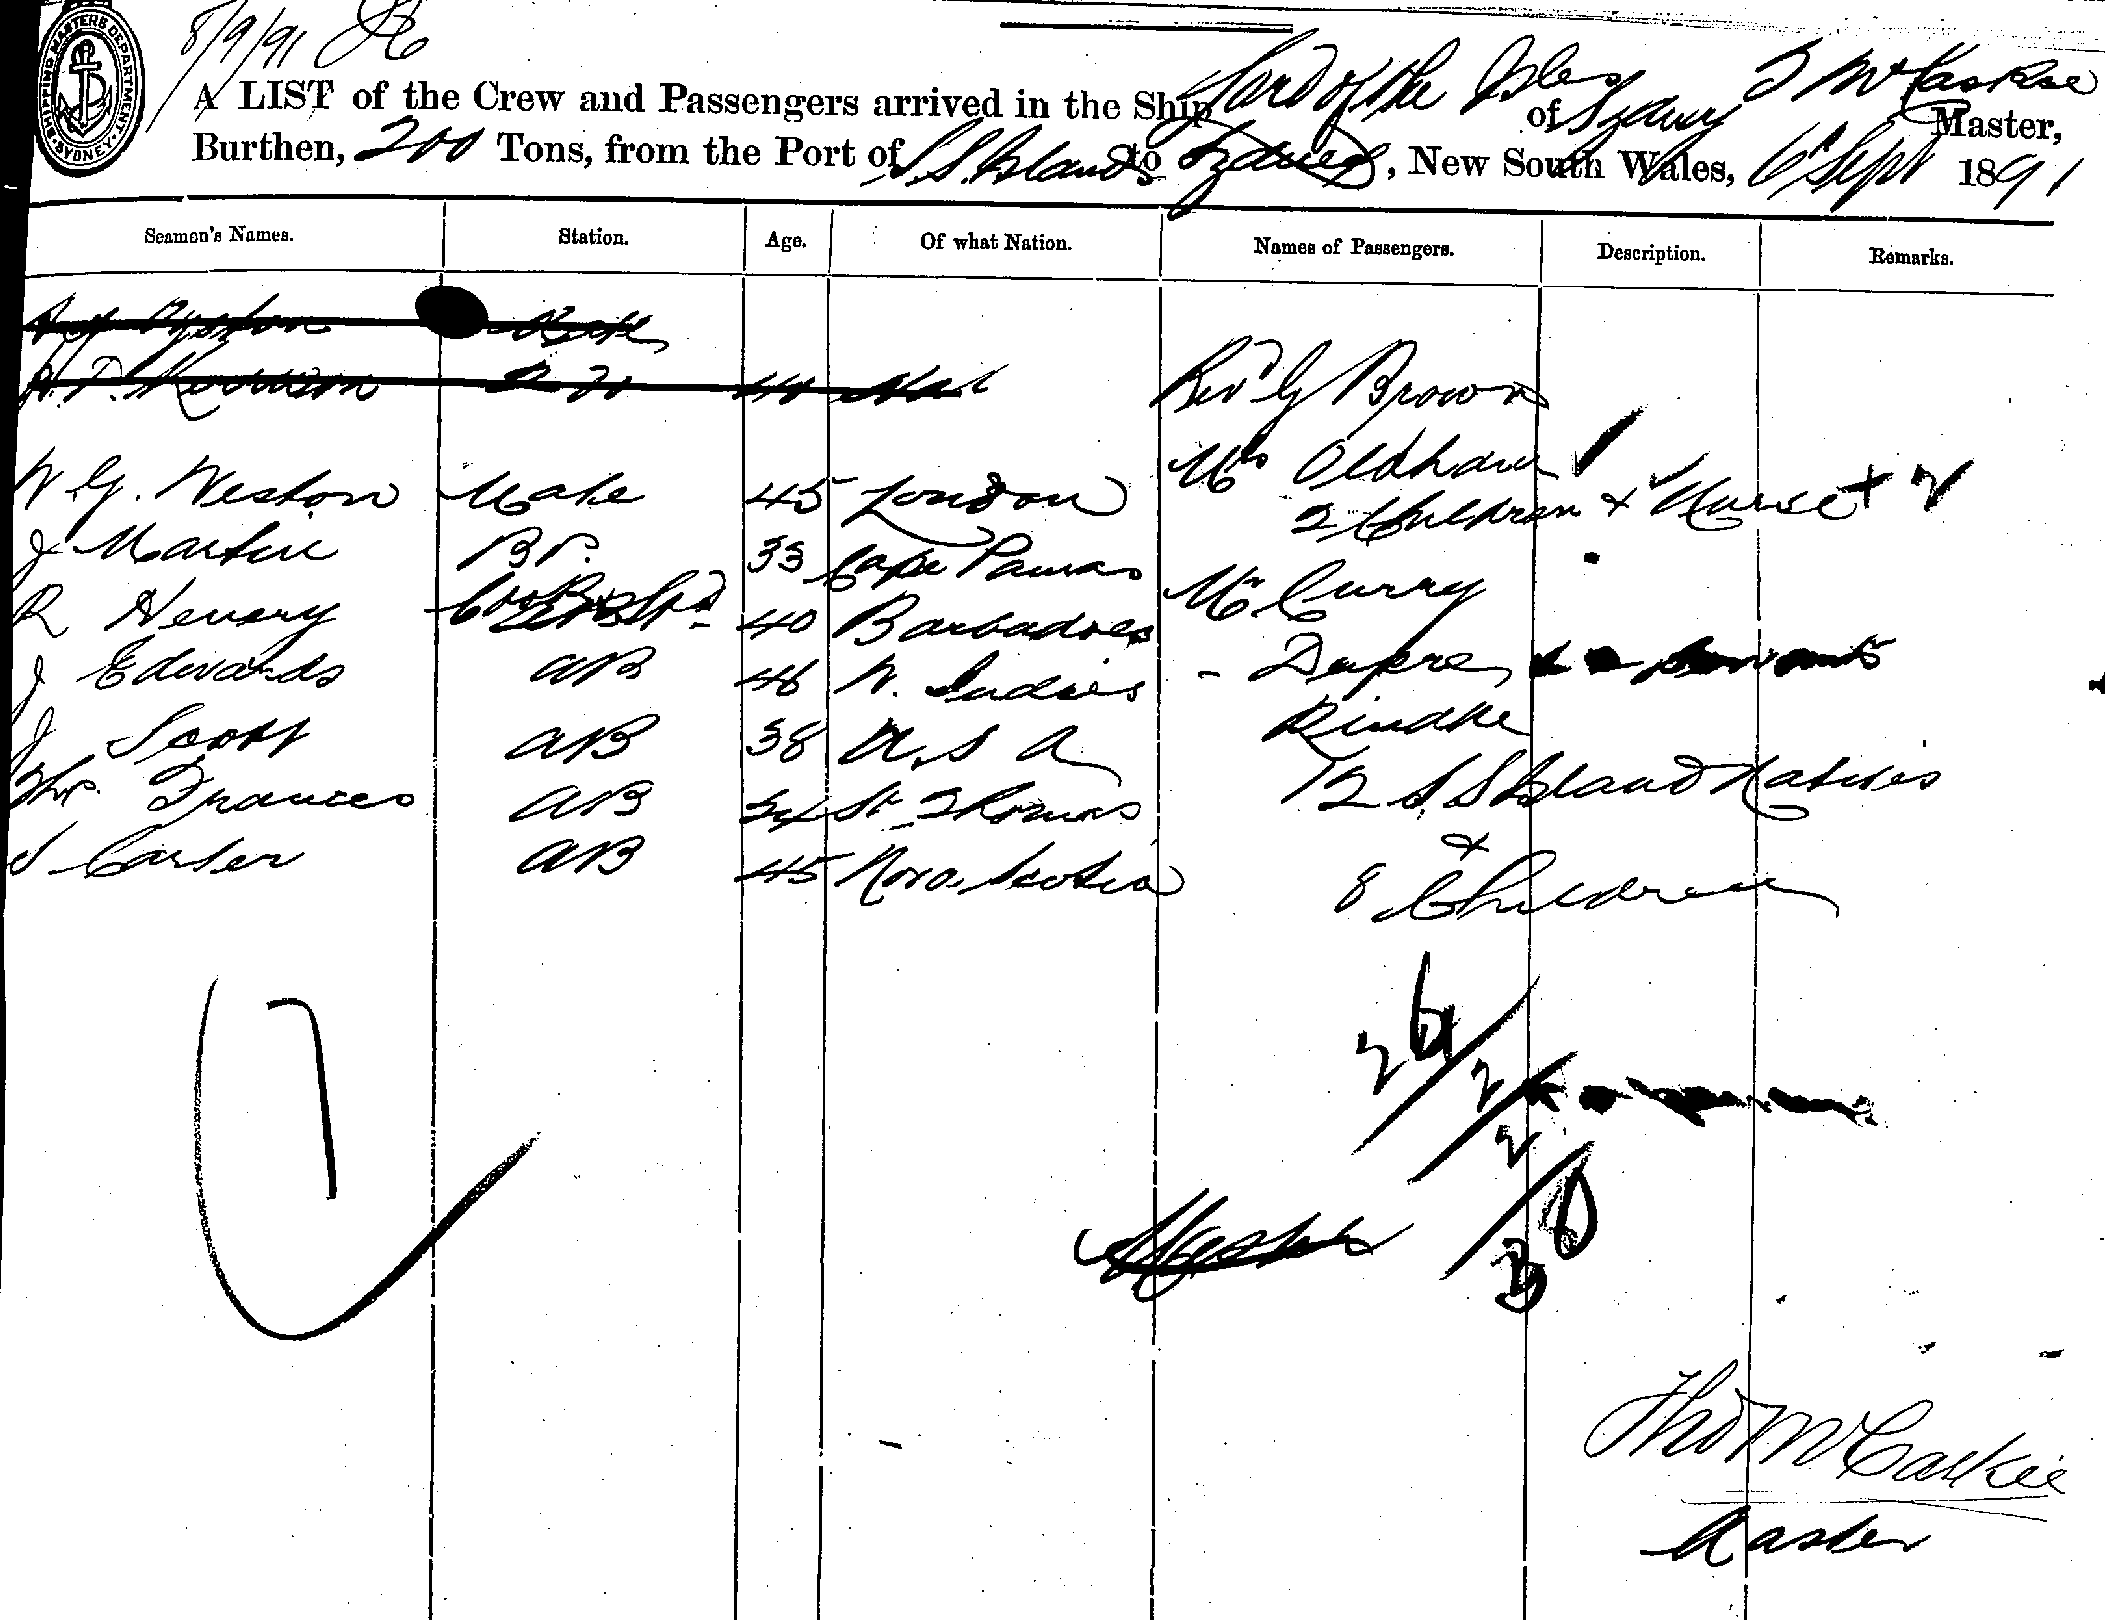 SHIPPING MASTERS DEPARTMENT. SYDNEY.
8/9/91
A LIST of the Crew and Passengers arrived in the Ship Lord of the Isles of Sydney T McKaskie Master,
Burthen, 200 Tons, from the Port of S. S. Islands to Sydney, New South Wales, 6th Sept 1891
Seamen's Names. Station. Age. Of what Nation. Names of Passengers. Description. Remarks.
Revd G Brown
W. G. Weston Mate 45 London Mrs Oldham
2 Children & Nurse +
J Martin 33 Cape Palmas
R Henery Cook & Std 40 Barbadoes Mr Curry
J Edwards AB 46 W. Indies - Dupre
J Scott AB 38 U. S A Rindke
Thos. Frances AB 34 St Thomas 12 S. S Island Natives
&
S Carter AB 45 Nova Scotia 8 Children
7
2
2
Thos McCaskie
Master